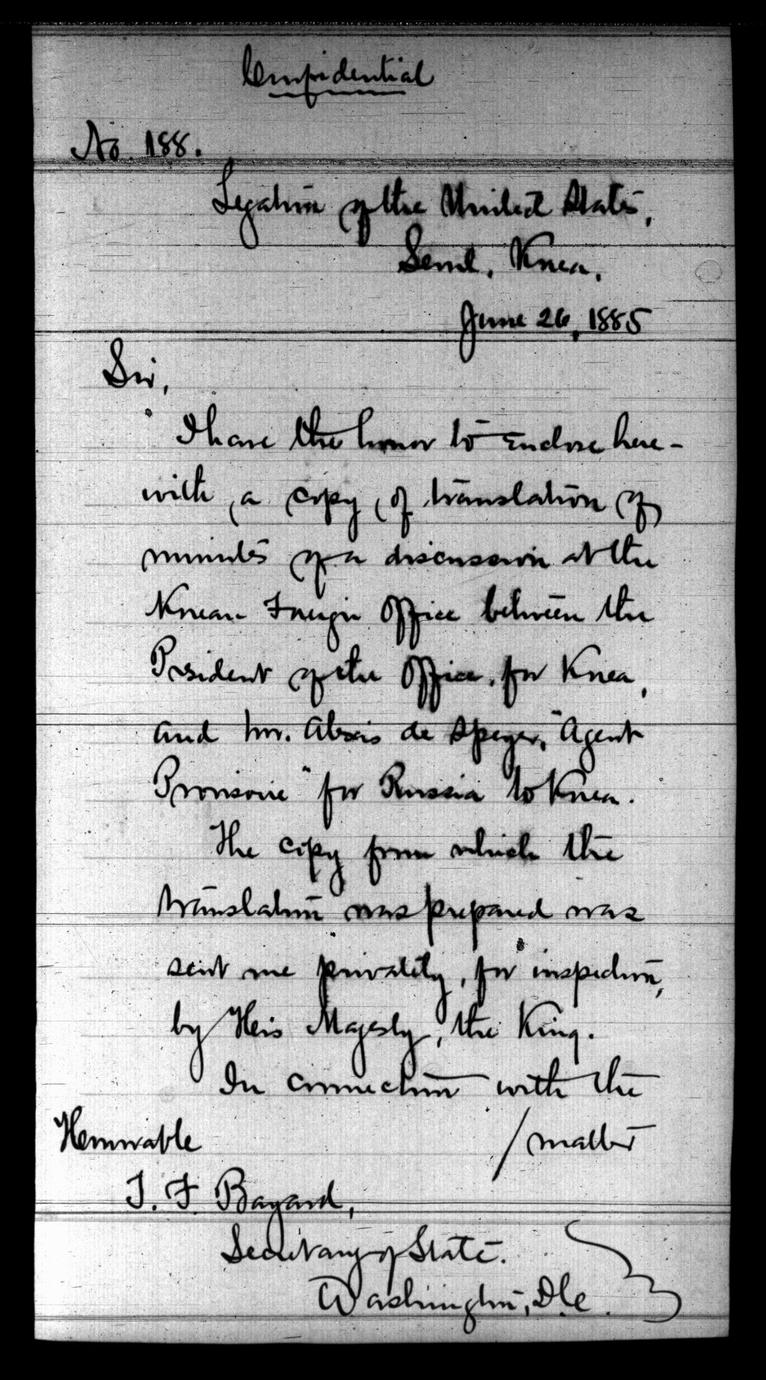 Confidential
No. 188.
Legation of the United States,
Seoul, Korea.
June 26, 1885
Sir,
I have the honor to enclose here-
with, a copy, of translation of
minutes of a discussion at the
Korean Foreign Office between the
President of the Office, for Korea,
and Mr. Alexis de Speyer, "Agent
Provisoire" for Russia to Korea.
The copy from which the
translation was prepared was
sent me privately, for inspection,
by His Majesty, the King.
In connection with the
/matter
Honorable
T. F. Bayard,
Secretary of State.
Washington, D.C.